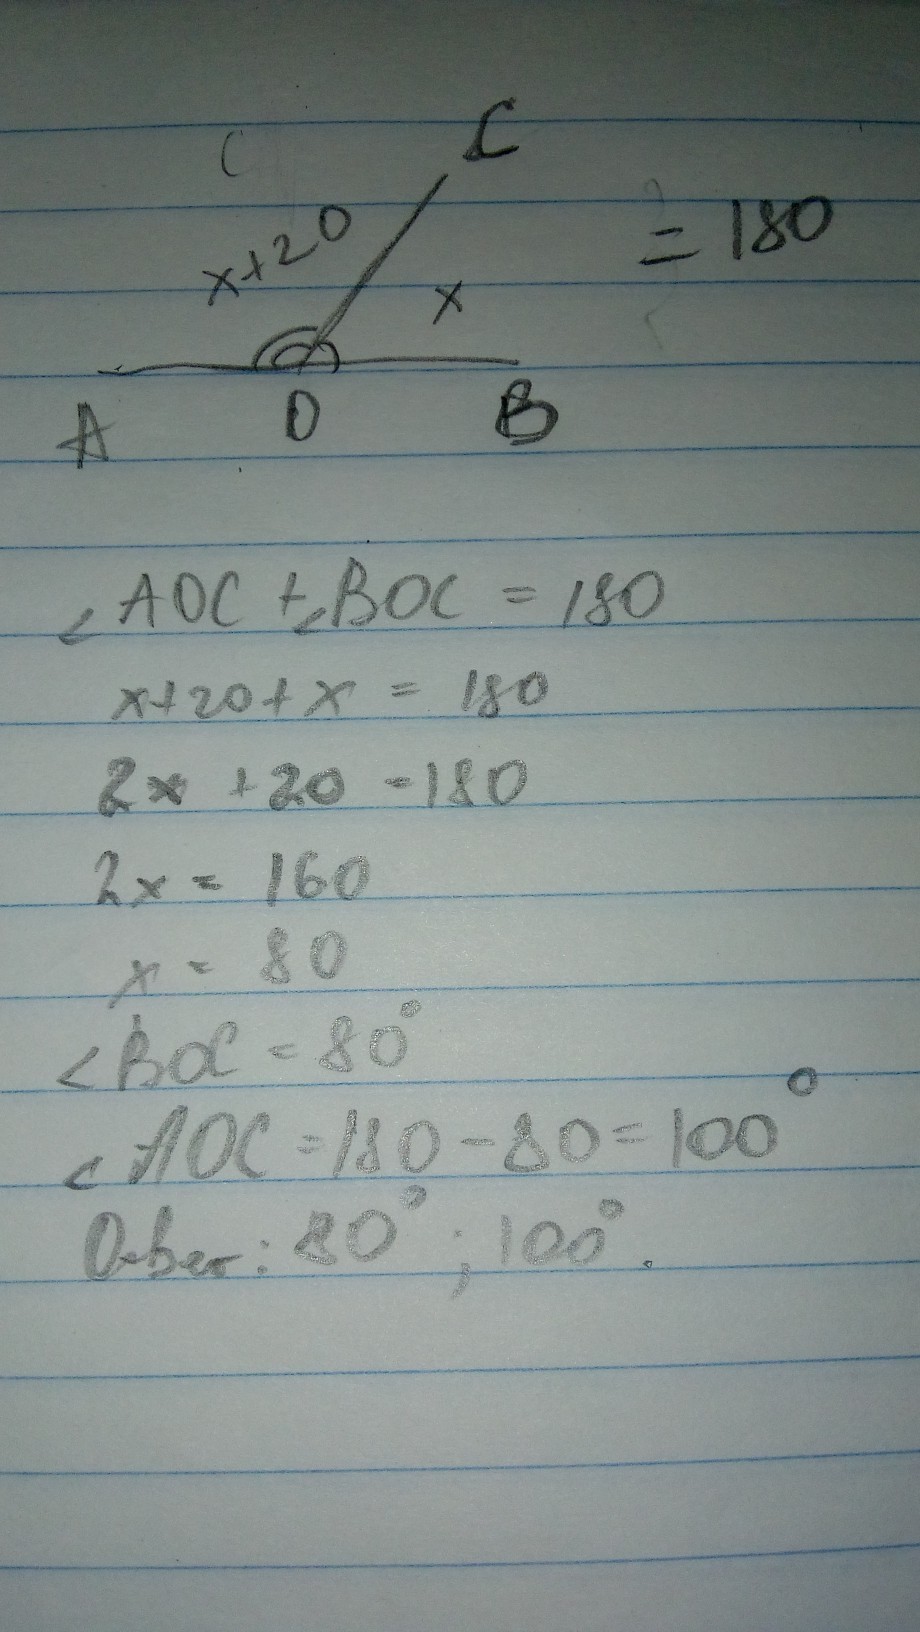 C
C
x+20
= 180
x
A
O
B
∠AOC + ∠BOC = 180
x+20+x = 180
2x +20 -180
2x = 160
x = 80
∠BOC = 80°
∠AOC = 180 - 80 = 100°
Ответ: 80° ; 100°.